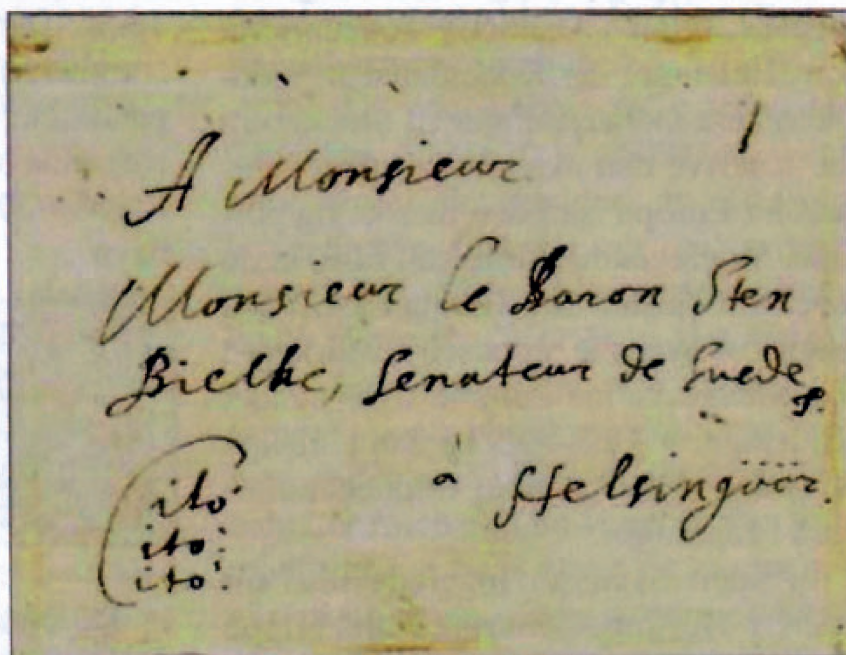 A Monsieur 1
Monsieur le Baron Sten
Bielke, Senateur de Suede
à Helsingöör.
Cito
ito:
ito: